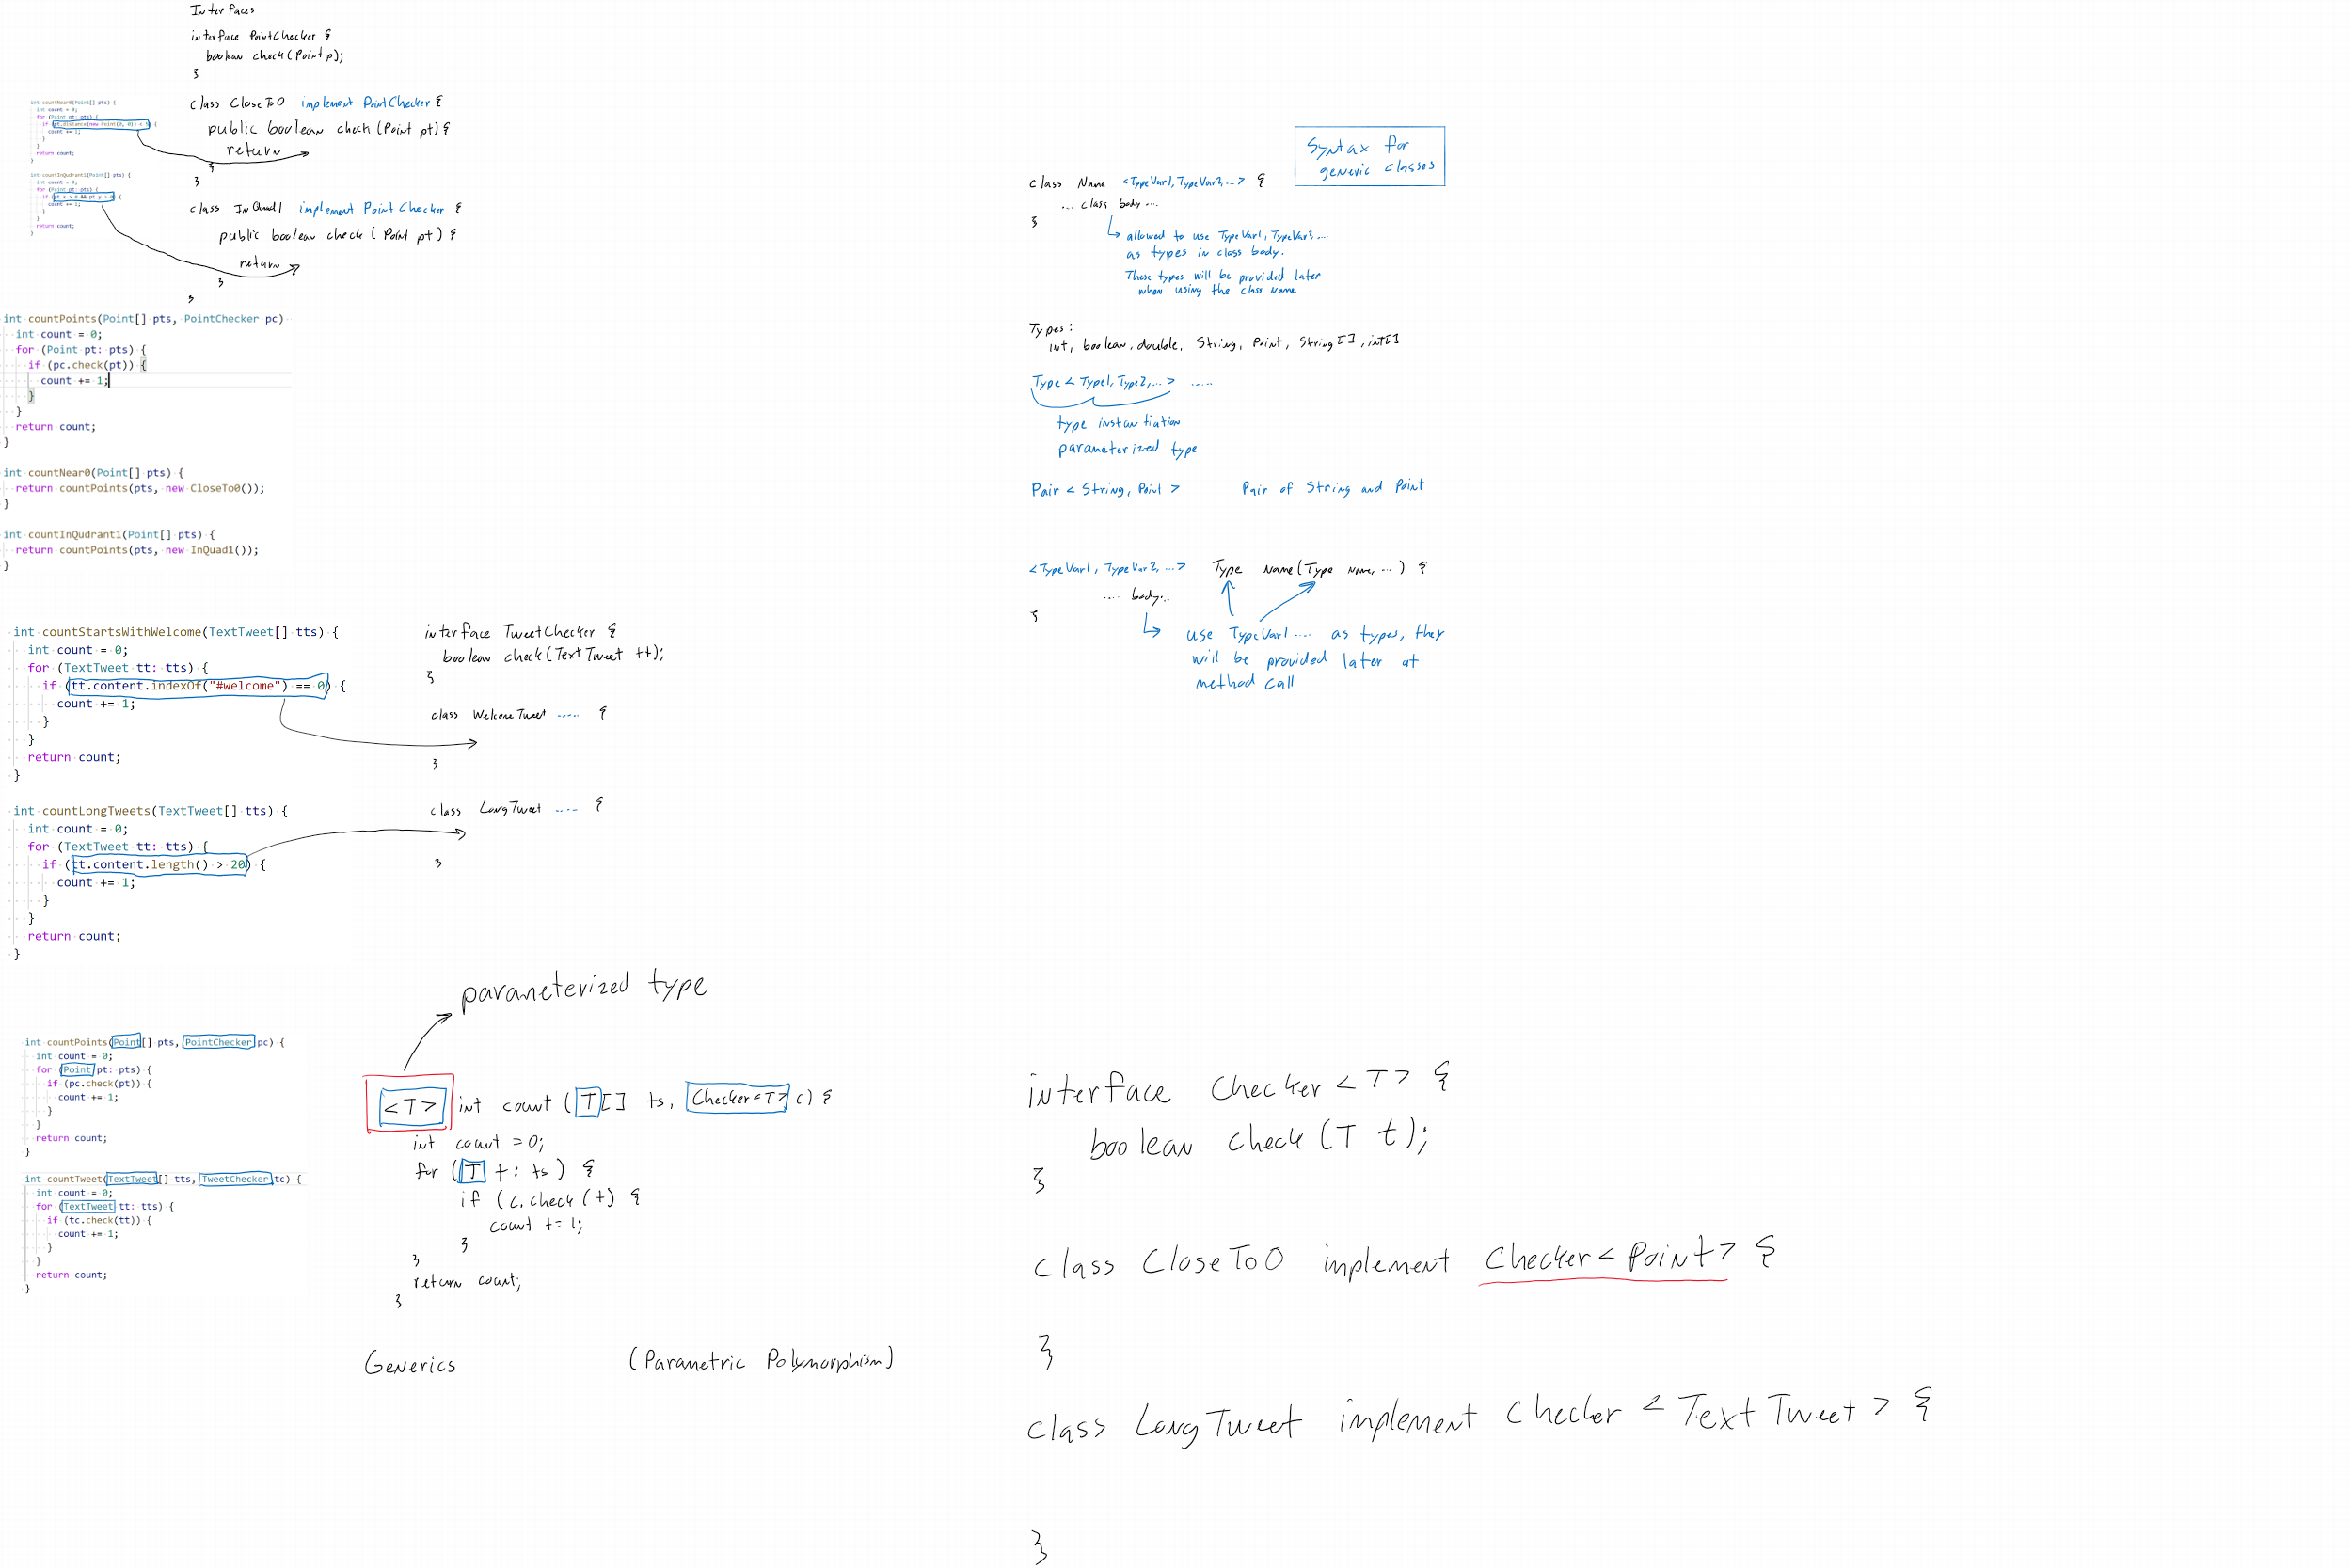 Interfaces
interface PointChecker {
boolean check(Point p);
}
int countNear0(Point[] pts) {
int count = 0;
for (Point pt: pts) {
if (pt.distance(new Point(0, 0)) < 5) {
count += 1;
}
}
return count;
}
class CloseTo0 implement PointChecker {
public boolean check (Point pt) {
return
}
}
int countInQudrant1(Point[] pts) {
int count = 0;
for (Point pt: pts) {
if (pt.x > 0 && pt.y > 0) {
count += 1;
}
}
return count;
}
class InQuad1 implement PointChecker {
public boolean check (Point pt) {
return
}
}
int countPoints(Point[] pts, PointChecker pc)
int count = 0;
for (Point pt: pts) {
if (pc.check(pt)) {
count += 1;
}
}
return count;
}
int countNear0(Point[] pts) {
return countPoints(pts, new CloseTo0());
}
int countInQudrant1(Point[] pts) {
return countPoints(pts, new InQuad1());
}
int countStartsWithWelcome(TextTweet[] tts) {
int count = 0;
for (TextTweet tt: tts) {
if (tt.content.indexOf("#welcome") == 0) {
count += 1;
}
}
return count;
}
interface TweetChecker {
boolean check(TextTweet tt);
}
class WelcomeTweet ..... {
}
int countLongTweets(TextTweet[] tts) {
int count = 0;
for (TextTweet tt: tts) {
if (tt.content.length() > 20) {
count += 1;
}
}
return count;
}
class LongTweet .... {
}
parameterized type
int countPoints(Point[] pts, PointChecker pc) {
int count = 0;
for (Point pt: pts) {
if (pc.check(pt)) {
count += 1;
}
}
return count;
}
int countTweet(TextTweet[] tts, TweetChecker tc) {
int count = 0;
for (TextTweet tt: tts) {
if (tc.check(tt)) {
count += 1;
}
}
return count;
}
<T> int count (T[] ts, Checker<T> c) {
int count = 0;
for (T t: ts) {
if (c.check(t) {
count += 1;
}
}
return count;
}
Generics (Parametric Polymorphism)
Syntax for
generic classes
class Name <TypeVar1, TypeVar2, ...> {
... class body ...
}
allowed to use TypeVar1, TypeVar2 ...
as types in class body.
These types will be provided later
when using the class name
Types:
int, boolean, double, String, Point, String[], int[]
Type < Type1, Type2, ... > .....
type instantiation
parameterized type
Pair < String, Point > Pair of String and Point
<TypeVar1, TypeVar2, ...> Type Name(Type Name, ...) {
.... body...
}
use TypeVar1 .... as types, they
will be provided later at
method call
interface Checker <T> {
boolean check (T t);
}
class CloseTo0 implement Checker<Point> {
}
class LongTweet implement Checker <TextTweet> {
}